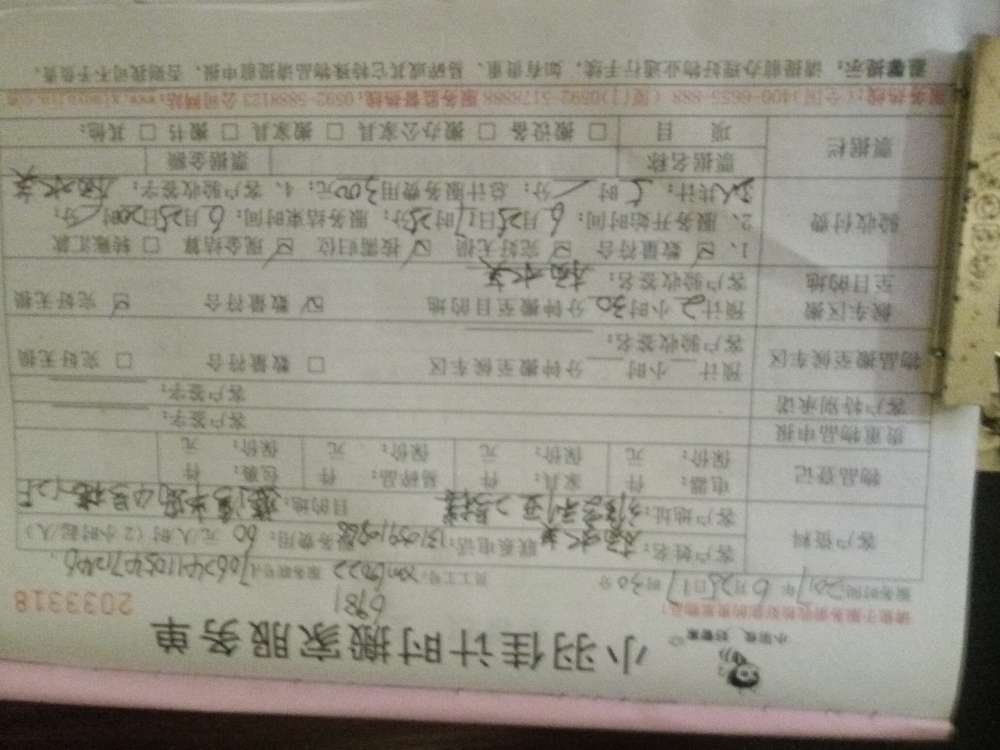 小羽佳 好管家
小羽佳计时搬家服务单
2033318
请您于服务前收检好您的贵重物品!
0981
服务时间: 2017年6月25日17时30分 员工工号: xm6022 服务单号:
客户资料 客户姓名: 杨水英 联系电话: 服务费用: 60 元/人/时(2小时起/人)
客户地址: 目的地:
物品登记 电器: 件 家具: 件 易碎品: 件 包裹: 件
保价: 元 保价: 元 保价: 元 保价: 元
贵重物品申报 客户签字:
客户特别承诺 客户签字:
物品搬至候车区 预计 小时 分钟搬至候车区 □ 数量符合 □ 完好无损
客户验收签名:
候车区搬至目的地 预计 2 小时 30 分钟搬至目的地 ☑ 数量符合 ☑ 完好无损
客户验收签名: 杨水英
验收付费 1、☑ 数量符合 ☑ 完好无损 ☑ 按需归位 ☑ 现金结算 □ 转账汇款
2、服务开始时间: 6月25日17时25分; 服务结束时间: 6月25日20时 分;
共计: 5 时 分; 总计服务费用300元; 4、客户验收签字: 杨水英
票据栏 票据名称 票据金额
项目 □ 搬设备 □ 搬办公家具 □ 搬家具 □ 搬书 □ 其他:
服务热线:(全国)400-6655-888 (厦门)0592-5178888 服务监督热线:0592-5888123 公司网站:www.xiaoyujia.com
温馨提示: 请提前办理好物业通行手续,如有贵重、易碎或其它特殊物品请提前申报,否则我司不予负责。